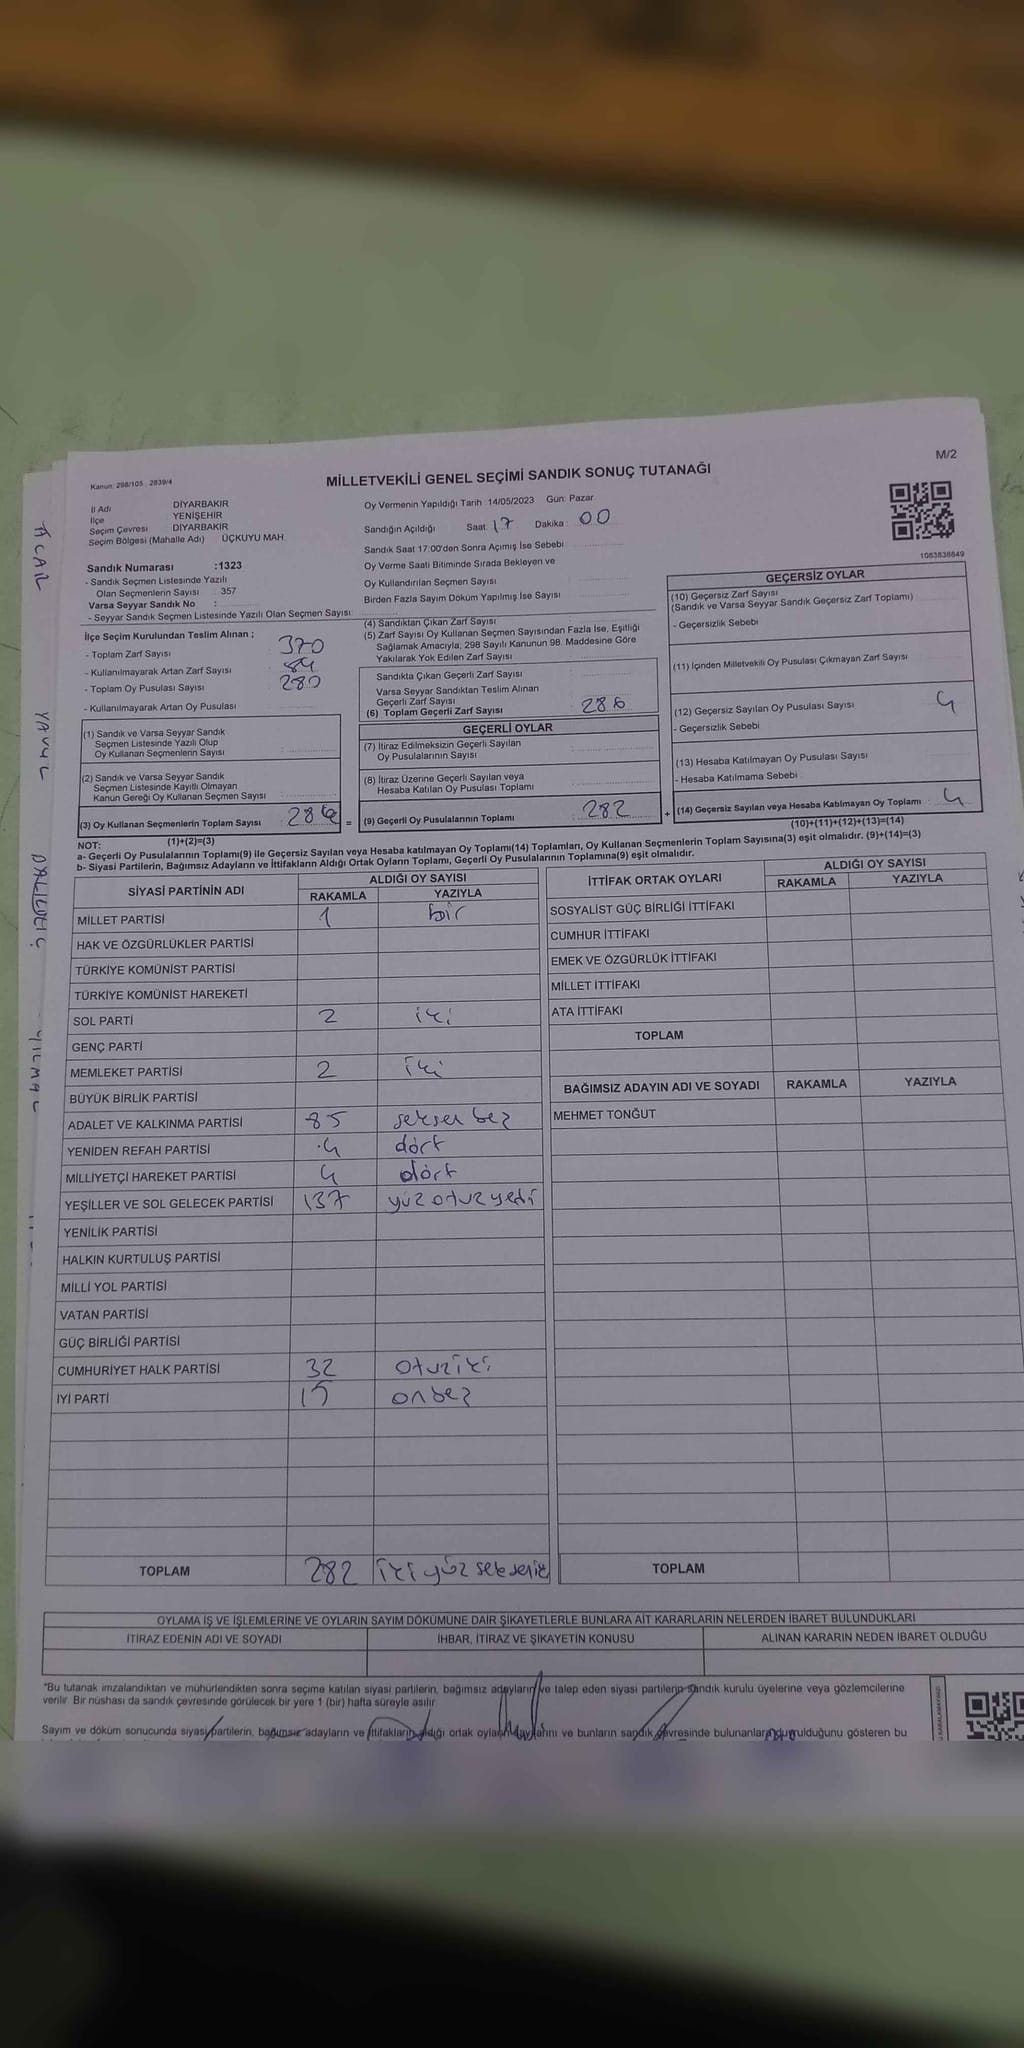 M/2
Kanun: 298/105 , 2839/4
MİLLETVEKİLİ GENEL SEÇİMİ SANDIK SONUÇ TUTANAĞI
İl Adı DİYARBAKIR
İlçe YENİŞEHİR
Seçim Çevresi DİYARBAKIR
Seçim Bölgesi (Mahalle Adı) ÜÇKUYU MAH.
Oy Vermenin Yapıldığı Tarih : 14/05/2023 Gün: Pazar
Sandığın Açıldığı Saat: 17 Dakika : 00
Sandık Saat 17:00'den Sonra Açımış İse Sebebi
Oy Verme Saati Bitiminde Sırada Bekleyen ve
Oy Kullandırılan Seçmen Sayısı
Birden Fazla Sayım Döküm Yapılmış İse Sayısı
1083838649
Sandık Numarası :1323
- Sandık Seçmen Listesinde Yazılı
Olan Seçmenlerin Sayısı : 357
Varsa Seyyar Sandık No :
- Seyyar Sandık Seçmen Listesinde Yazılı Olan Seçmen Sayısı:
İlçe Seçim Kurulundan Teslim Alınan ;
- Toplam Zarf Sayısı 370
- Kullanılmayarak Artan Zarf Sayısı 84
- Toplam Oy Pusulası Sayısı 280
- Kullanılmayarak Artan Oy Pusulası
(1) Sandık ve Varsa Seyyar Sandık
Seçmen Listesinde Yazılı Olup
Oy Kullanan Seçmenlerin Sayısı :
(2) Sandık ve Varsa Seyyar Sandık
Seçmen Listesinde Kayıtlı Olmayan
Kanun Gereği Oy Kullanan Seçmen Sayısı :
(3) Oy Kullanan Seçmenlerin Toplam Sayısı 286 =
(1)+(2)=(3)
(4) Sandıktan Çıkan Zarf Sayısı
(5) Zarf Sayısı Oy Kullanan Seçmen Sayısından Fazla İse, Eşitliği
Sağlamak Amacıyla, 298 Sayılı Kanunun 98. Maddesine Göre
Yakılarak Yok Edilen Zarf Sayısı
Sandıkta Çıkan Geçerli Zarf Sayısı
Varsa Seyyar Sandıktan Teslim Alınan
Geçerli Zarf Sayısı
(6) Toplam Geçerli Zarf Sayısı : 286
GEÇERLİ OYLAR
(7) İtiraz Edilmeksizin Geçerli Sayılan
Oy Pusulalarının Sayısı
(8) İtiraz Üzerine Geçerli Sayılan veya
Hesaba Katılan Oy Pusulası Toplamı
(9) Geçerli Oy Pusulalarının Toplamı : 282 +
GEÇERSİZ OYLAR
(10) Geçersiz Zarf Sayısı
(Sandık ve Varsa Seyyar Sandık Geçersiz Zarf Toplamı)
- Geçersizlik Sebebi
(11) İçinden Milletvekili Oy Pusulası Çıkmayan Zarf Sayısı
(12) Geçersiz Sayılan Oy Pusulası Sayısı 4
- Geçersizlik Sebebi
(13) Hesaba Katılmayan Oy Pusulası Sayısı
- Hesaba Katılmama Sebebi
(14) Geçersiz Sayılan veya Hesaba Katılmayan Oy Toplamı : 4
(10)+(11)+(12)+(13)=(14)
NOT:
a- Geçerli Oy Pusulalarının Toplamı(9) ile Geçersiz Sayılan veya Hesaba katılmayan Oy Toplamı(14) Toplamları, Oy Kullanan Seçmenlerin Toplam Sayısına(3) eşit olmalıdır. (9)+(14)=(3)
b- Siyasi Partilerin, Bağımsız Adayların ve İttifakların Aldığı Ortak Oyların Toplamı, Geçerli Oy Pusulalarının Toplamına(9) eşit olmalıdır.
SİYASİ PARTİNİN ADI ALDIĞI OY SAYISI
RAKAMLA YAZIYLA
MİLLET PARTİSİ 1 bir
HAK VE ÖZGÜRLÜKLER PARTİSİ
TÜRKİYE KOMÜNİST PARTİSİ
TÜRKİYE KOMÜNİST HAREKETİ
SOL PARTİ 2 iki
GENÇ PARTİ
MEMLEKET PARTİSİ 2 iki
BÜYÜK BİRLİK PARTİSİ
ADALET VE KALKINMA PARTİSİ 85 seksen beş
YENİDEN REFAH PARTİSİ 4 dört
MİLLİYETÇİ HAREKET PARTİSİ 4 dört
YEŞİLLER VE SOL GELECEK PARTİSİ 137 yüz otuz yedi
YENİLİK PARTİSİ
HALKIN KURTULUŞ PARTİSİ
MİLLİ YOL PARTİSİ
VATAN PARTİSİ
GÜÇ BİRLİĞİ PARTİSİ
CUMHURİYET HALK PARTİSİ 32 otuz iki
İYİ PARTİ 15 onbeş
TOPLAM 282
İTTİFAK ORTAK OYLARI ALDIĞI OY SAYISI
RAKAMLA YAZIYLA
SOSYALİST GÜÇ BİRLİĞİ İTTİFAKI
CUMHUR İTTİFAKI
EMEK VE ÖZGÜRLÜK İTTİFAKI
MİLLET İTTİFAKI
ATA İTTİFAKI
TOPLAM
BAĞIMSIZ ADAYIN ADI VE SOYADI RAKAMLA YAZIYLA
MEHMET TONĞUT
TOPLAM
OYLAMA İŞ VE İŞLEMLERİNE VE OYLARIN SAYIM DÖKÜMÜNE DAİR ŞİKAYETLERLE BUNLARA AİT KARARLARIN NELERDEN İBARET BULUNDUKLARI
İTİRAZ EDENİN ADI VE SOYADI İHBAR, İTİRAZ VE ŞİKAYETİN KONUSU ALINAN KARARIN NEDEN İBARET OLDUĞU
*Bu tutanak imzalandıktan ve mühürlendikten sonra seçime katılan siyasi partilerin, bağımsız adayların ve talep eden siyasi partilerin sandık kurulu üyelerine veya gözlemcilerine
verilir. Bir nüshası da sandık çevresinde görülecek bir yere 1 (bir) hafta süreyle asılır
Sayım ve döküm sonucunda siyasi partilerin, bağımsız adayların ve ittifakların aldığı ortak oyların ve bunların sandık çevresinde bulunanlara duyurulduğunu gösteren bu
ACAR
YAVUZ
YILMAZ